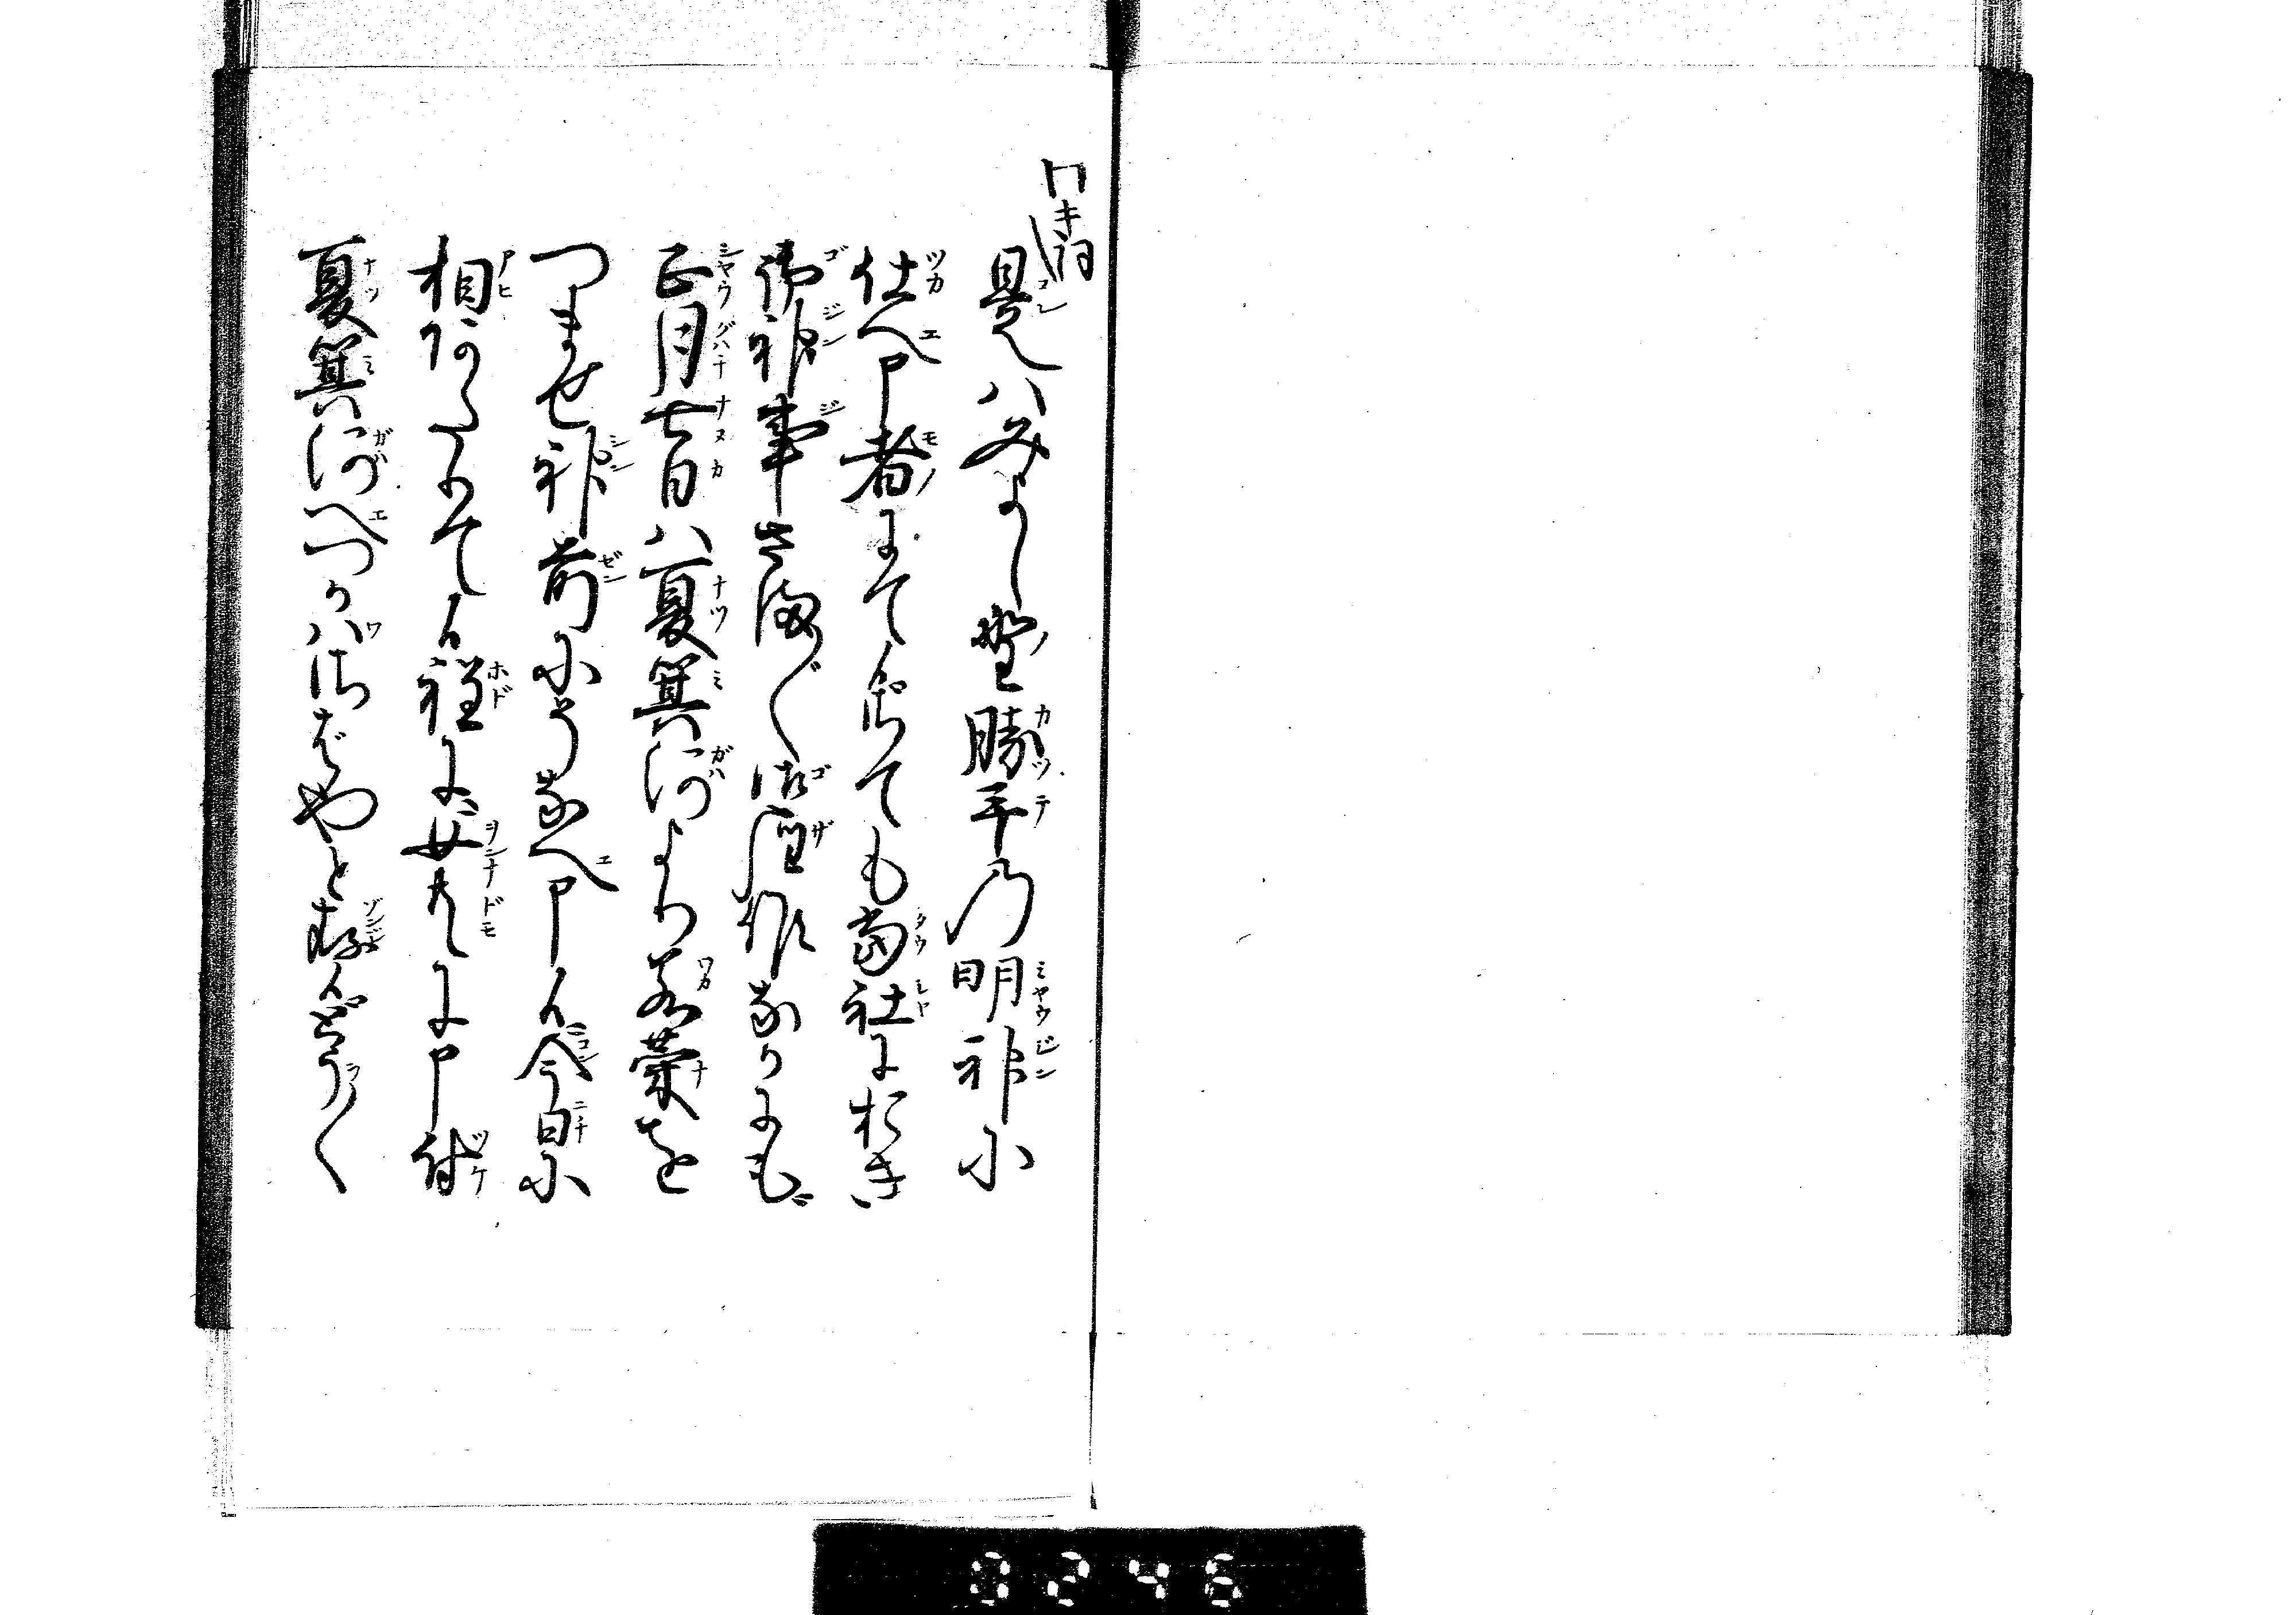 ワキ詞
是ハみよし野勝手乃明神に
仕へ申者にて候扨ても当社におき
御神事さま〴〵御座候なかにも
正月七日ハ夏箕河より若菜を
つませ神前にそなへ申候今日に
相あたりて候程に女共に申付
夏箕河へつかハさはやと存候